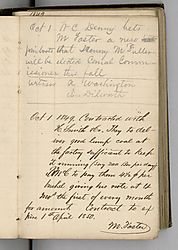 1849
Oct 1 A C Denny bets
M Foster a new
hat that Henry M Fuller
will be elected Canal Comm
issioner this fall
witness A Washington
Oct 1 1849. Contracted with
H Smith to deli
ver good lump coal at
the factory sufficient to keep
it running day
to pay them
bushel giving our note at
the first of every month
for amount. Contract to ex
pire 1st April 1850.
M. Foster